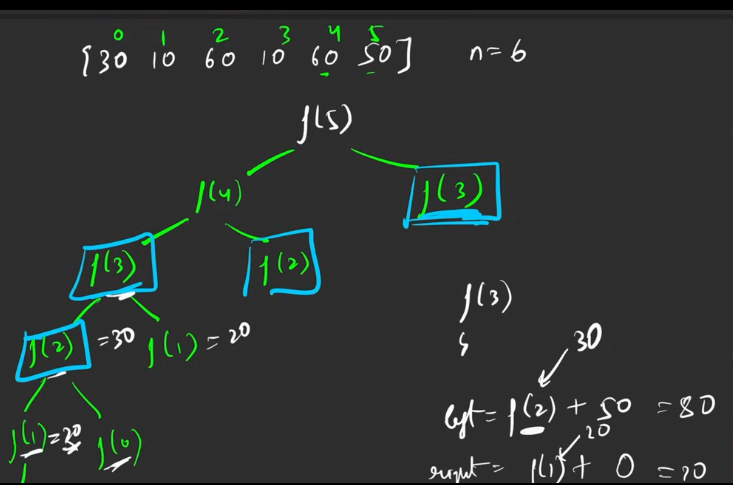 0 1 2 3 4 5
[30 10 60 10 60 50] n=6
f(5)
f(4) f(3)
f(3) f(2)
f(2) =30 f(1) = 20
f(1)=20 f(0)
f(3)
{
30
left = f(2) + 50 = 80
20
right = f(1) + 0 = 20